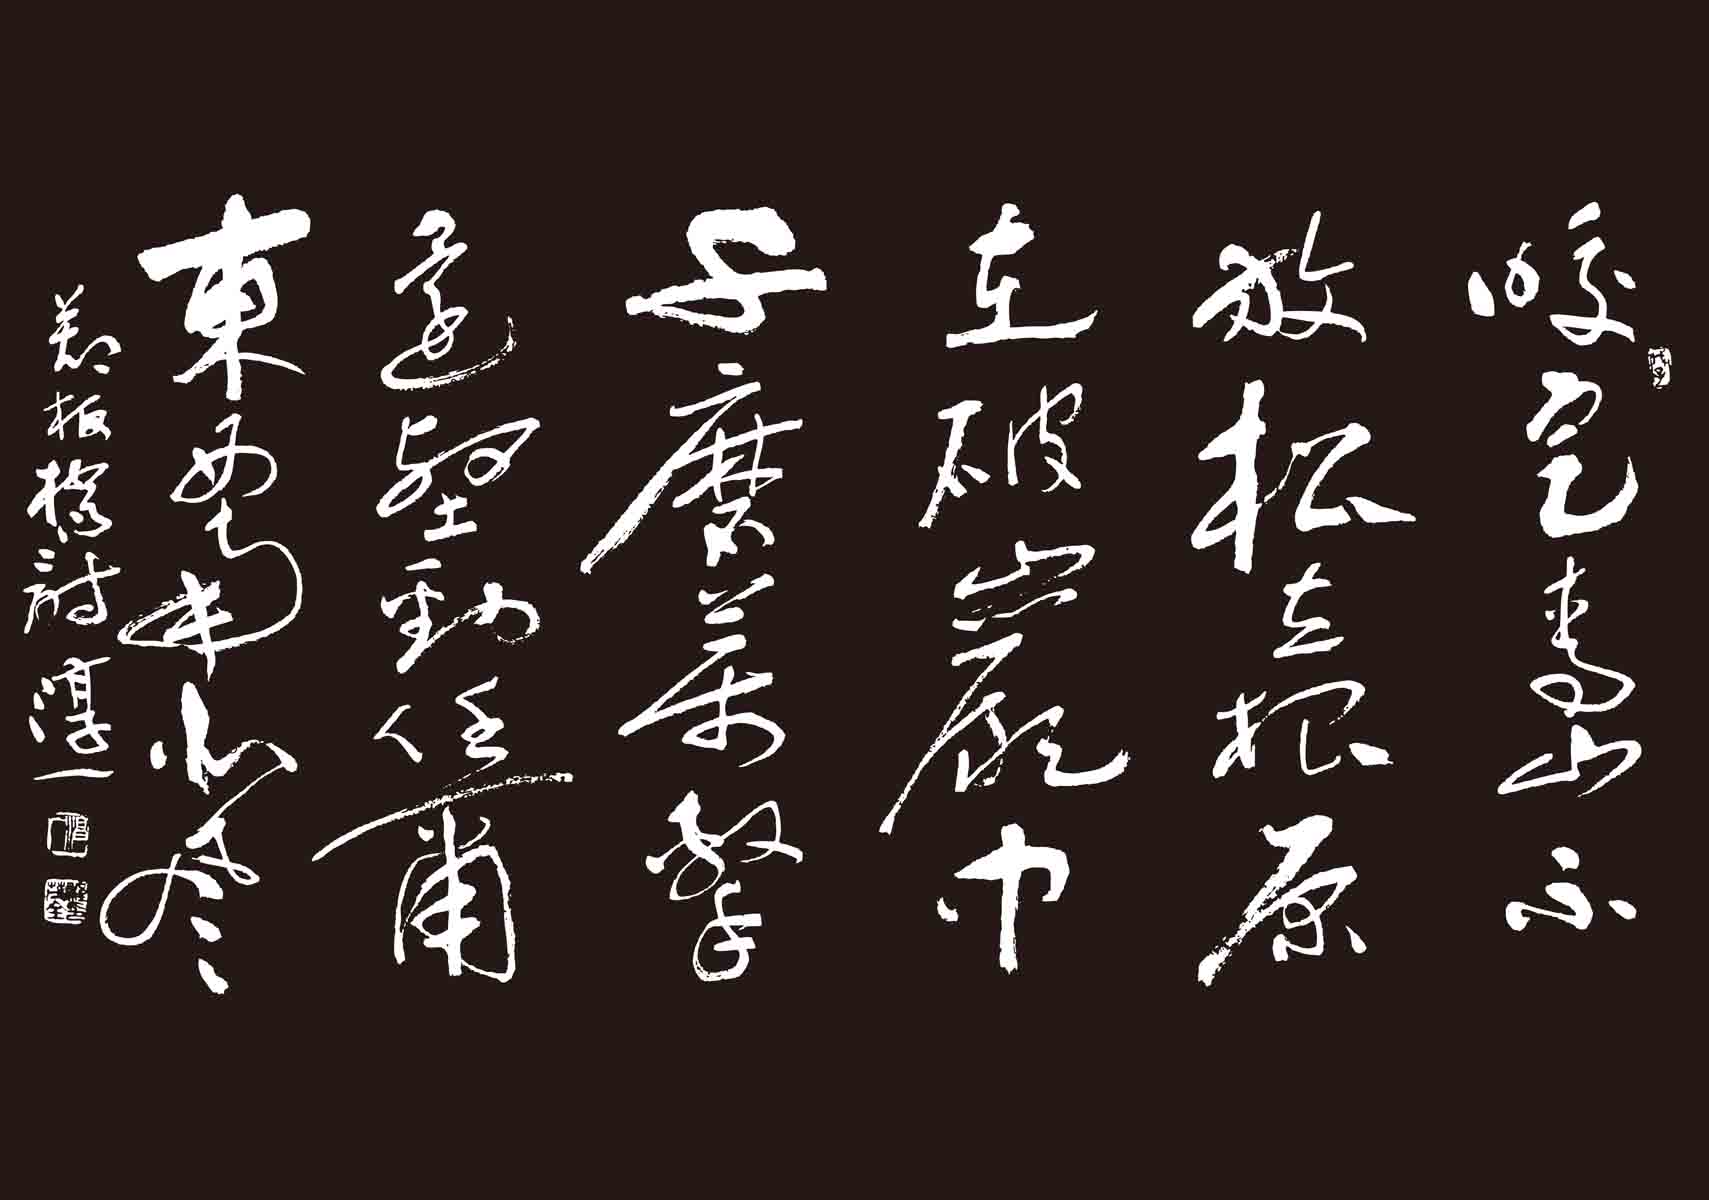 咬定青山不
放松立根原
在破巖中
千磨萬擊
還堅勁任爾
東西南北風
鄭板橋詩 淳一